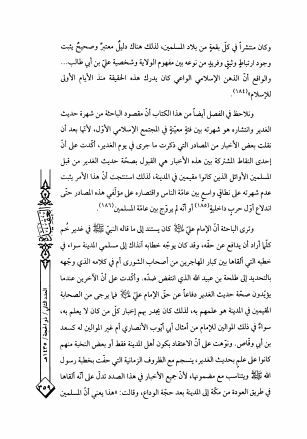 وكان منتشراً في كلّ بقعةٍ من بلاد المسلمين، لذلك هناك دليلٌ معتبرٌ وصحيحٌ يثبت
وجود ارتباطٍ وثيقٍ وفريدٍ من نوعه بين مفهوم الولاية وشخصية علي بن أبي طالب...
والواقع أنّ الذهن الإسلامي الواعي كان يدرك هذه الحقيقة منذ الأيام الأولى
للإسلام»(١٨٤).
ونلاحظ في الفصل أيضاً من هذا الكتاب أنّ مقصود الباحثة من شهرة حديث
الغدير وانتشاره هو شهرته بين فئةٍ معيّنةٍ في المجتمع الإسلامي الأوّل، لأنها بعد أن
نقلت بعض الأخبار من المصادر التي ذكرت ما جرى في يوم الغدير، أكّدت على أنّ
إحدى النقاط المشتركة بين هذه الأخبار هي القبول بصحّة حديث الغدير من قبل
المسلمين الأوائل الذين كانوا مقيمين في المدينة، لذلك استنتجت أنّ هذا الأمر يثبت
عدم شهرته على نطاقٍ واسعٍ بين عامّة الناس واقتصاره على مؤلّفي هذه المصادر حتّى
اندلاع أوّل حربٍ داخليةٍ(١٨٥) أو أنّه لم يروّج بين عامّة المسلمين(١٨٦).
وترى الباحثة أنّ الإمام علي كان يستند إلى ما قاله النبيّ في غدير خُم
كلّما أراد أن يدافع عن حقّه، وقد كان يوجّه خطابه آنذاك إلى مسلمي المدينة سواء في
خطبه التي ألقاها بين كبار المهاجرين من أصحاب الشورى أم في كلامه الذي وجّهه
بالتحديد إلى طلحة بن عبيد الله الذي انتفض ضدّه. وأكّدت على أنّ الآخرين عندما
يؤيّدون صحّة حديث الغدير دفاعاً عن حقّ الإمام علي فإما يرجى من الصحابة
المقيمين في المدينة هو علمهم به، لذلك كان يجدر بهم إخبار كلّ من كان لا يعلم به،
سواءٌ في ذلك الموالين للإمام من أمثال أبي أيوب الأنصاري أم غير الموالين له كسعد
بن أبي وقّاص. ونوّهت على أنّ الاعتقاد بكون أهل المدينة فقط أو بعض النخبة منهم
كانوا على علمٍ بحديث الغدير، ينسجم مع الظروف الزمانية التي حفّت بخطبة رسول
الله ويتناسب مع مضمونها، لأنّ جميع الأخبار في هذا الصدد تدلّ على أنّه ألقاها
في طريق العودة من مكّة إلى المدينة بعد حجّة الوداع، وقالت: «هذا يعني أنّ المسلمين
العدد الثاني / ذو الحجة / ١٤٣٥هـ
٣٥٩